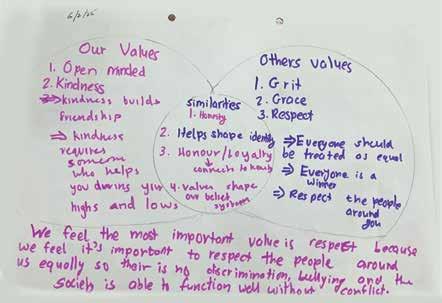 6/2/25
Our Values
1. Open minded
2. Kindness
⇒ kindness builds
friendship
⇒ kindness
requires
someone
who helps
you during your
highs and lows
similarities
1. Honesty
2. Helps shape identity
3. Honour/Loyalty
↳ connects to
4. values shape
our belief
systems
Others values
1. Grit
2. Grace
3. Respect
⇒ Everyone should
be treated as equal
⇒ Everyone is a
winner
⇒ Respect the people
around
you
We feel the most important value is respect because
we feel it's important to respect the people around
us equally so their is no discrimination, bullying and the
society is able to function well without conflict.